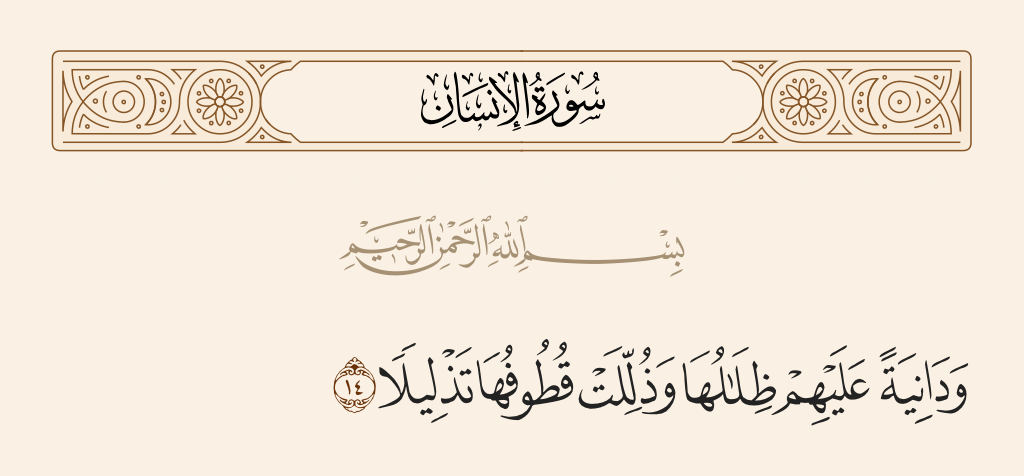 سُورَةُ الإِنسَانِ
بِسْمِ ٱللَّهِ ٱلرَّحْمَٰنِ ٱلرَّحِيمِ
وَدَانِيَةً عَلَيْهِمْ ظِلَٰلُهَا وَذُلِّلَتْ قُطُوفُهَا تَذْلِيلًا ١٤